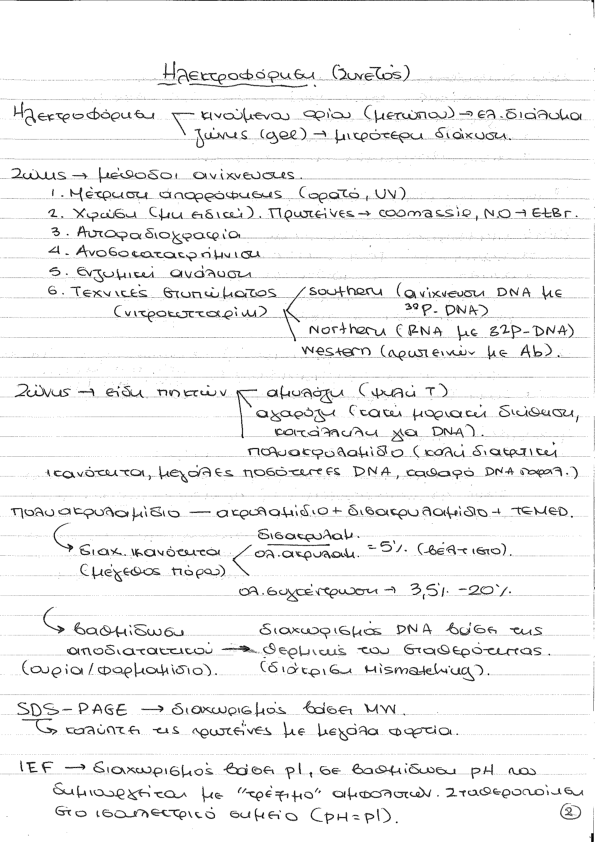 Ηλεκτροφόρηση (Συνετός)
Ηλεκτροφόρηση κινούμενου ορίου (μετώπου) → ελ. διάλυμα
ζώνης (gel) → μικρότερη διάχυση.
Ζώνης → μέθοδοι ανίχνευσης.
1. Μέτρηση απορρόφησης (ορατό, UV)
2. Χρώση (μη ειδική). Πρωτεΐνες → coomassie, N.O → EtBr.
3. Αυτοραδιογραφία
4. Ανοσοκατακρήμνιση
5. Ενζυμική ανάλυση
6. Τεχνικές στυπώματος southern (ανίχνευση DNA με
(νιτροκυτταρίνη) 32P-DNA)
Northern (RNA με 32P-DNA)
Western (πρωτεινών με Ab).
Ζώνης → είδη πηκτών αμυλόζη (ψηλή Τ)
αγαρόζη (κακή μοριακή διήθηση,
κατάλληλη για DNA).
πολυακρυλαμίδιο (καλή διακριτική
ικανότητα, μεγάλες ποσότητες DNA, καθαρό DNA παραλ.)
Πολυακρυλαμίδιο — ακρυλαμίδιο + δισακρυλαμίδιο + TEMED.
δισακρυλαμ.
διαχ. ικανότητα ολ. ακρυλαμ. = 5% (βέλτιστο).
(μέγεθος πόρου)
ολ. συγκέντρωση → 3,5% - 20%
βαθμίδωση διαχωρισμός DNA βάσει της
αποδιατακτικού → θερμικής του σταθερότητας.
(ουρία/φορμαμίδιο). (διάκριση Mismatching).
SDS-PAGE → διαχωρισμός βάσει MW.
καλύπτει τις πρωτεΐνες με μεγάλα φορτία.
IEF → διαχωρισμός βάσει pI, σε βαθμίδωση pH που
δημιουργείται με "τρέξιμο" αμφολυτών. Σταθεροποίηση
στο ισοηλεκτρικό σημείο (pH=pI).
2